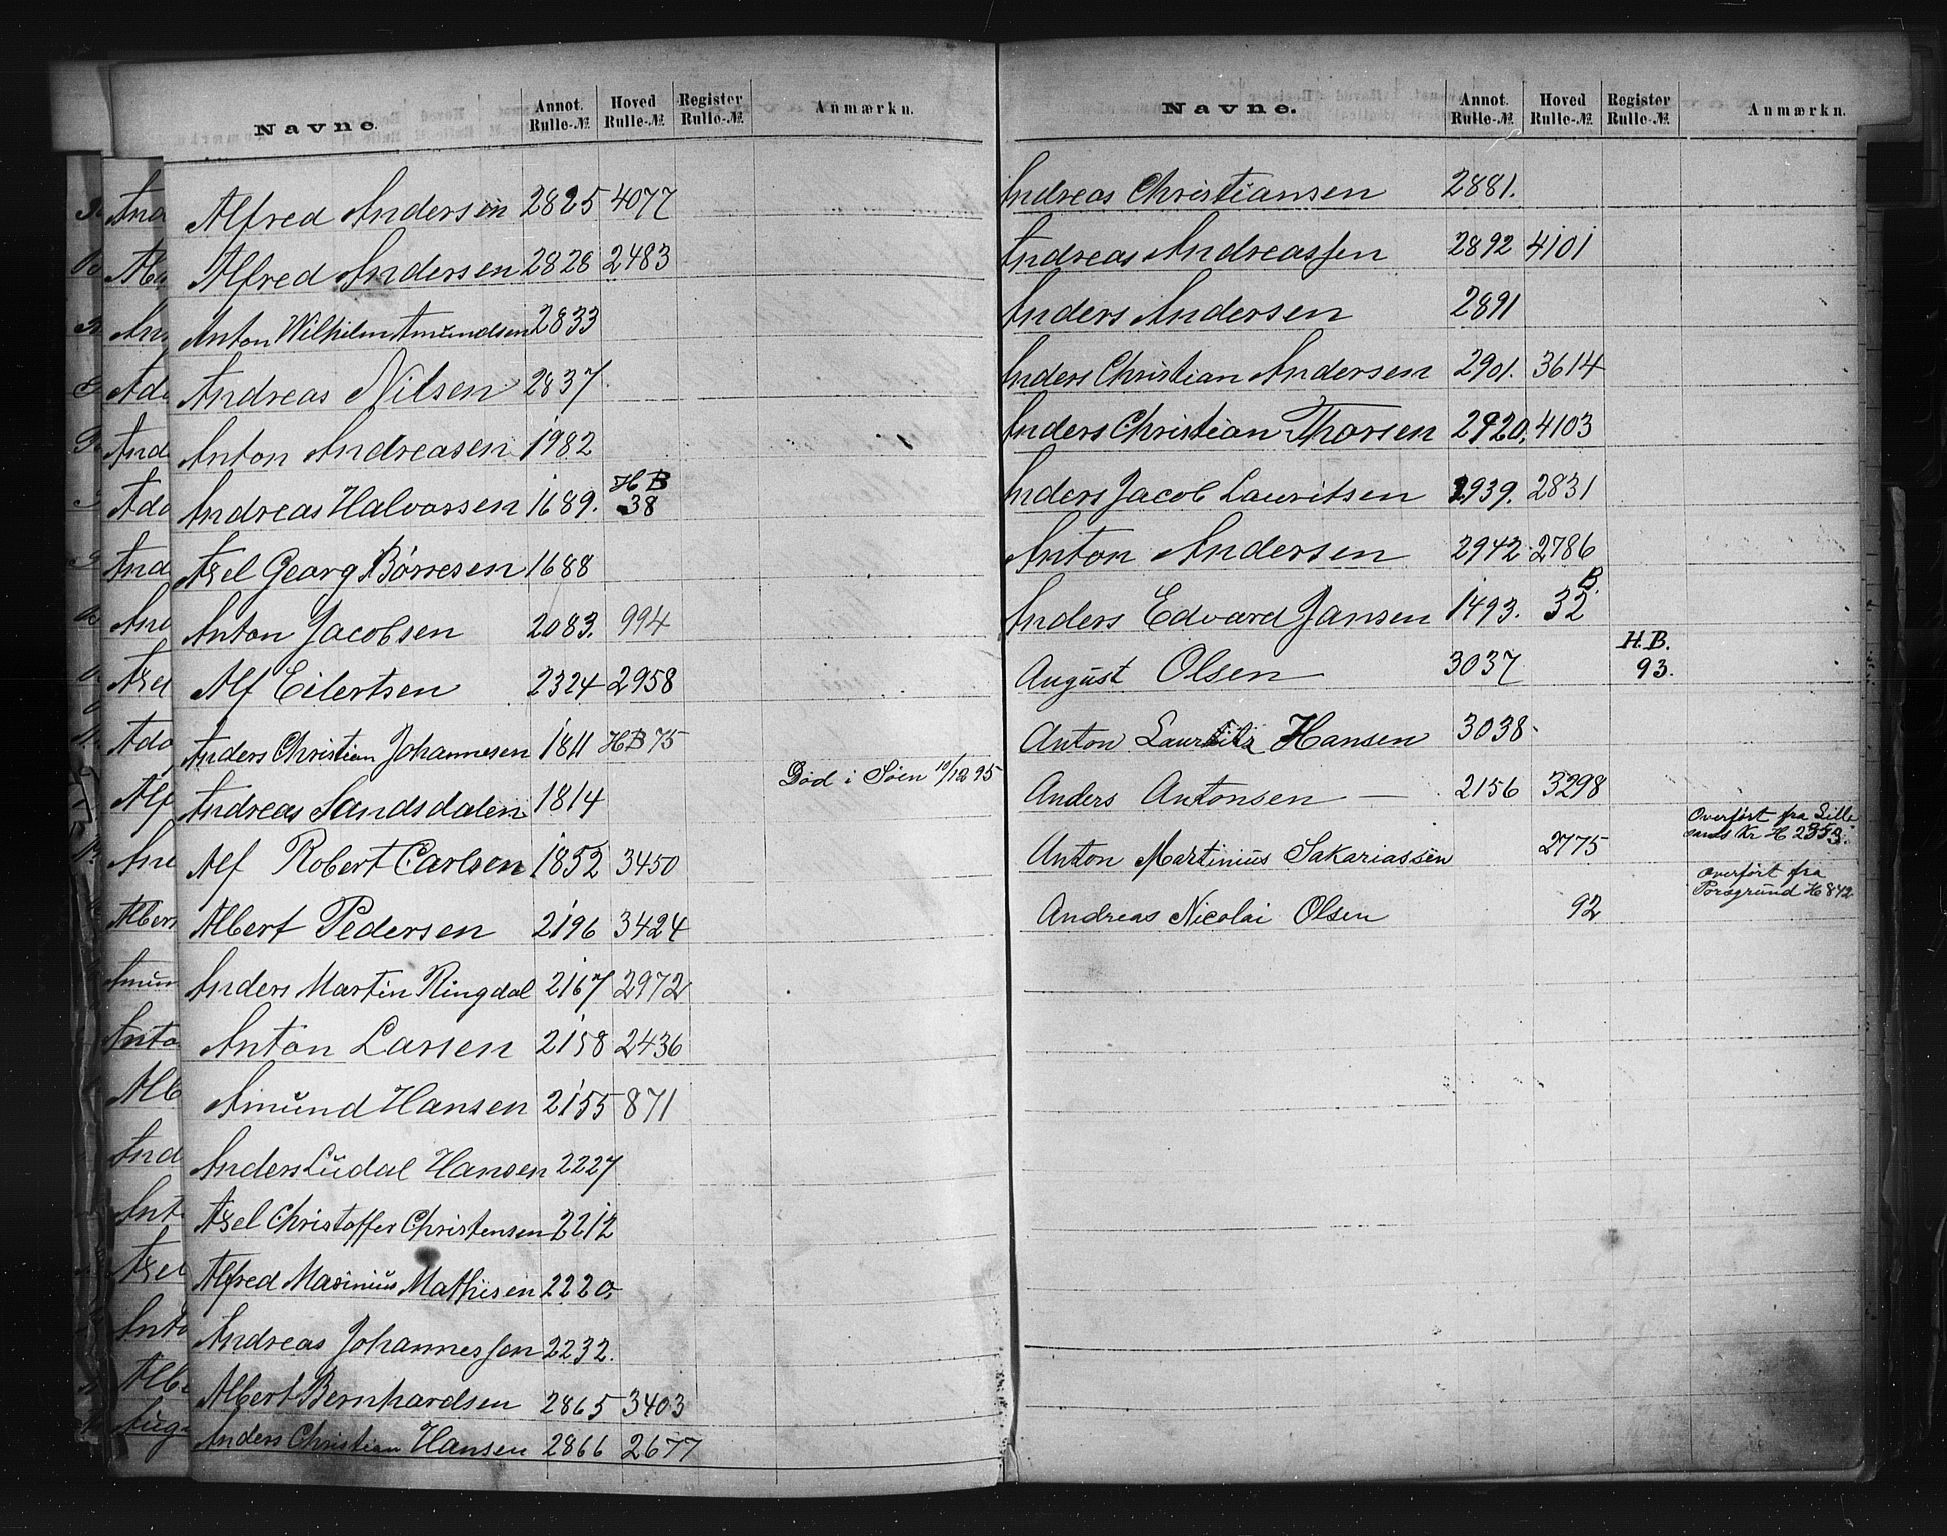 Navne. Annot. Rulle-№ Hoved Rulle-№ Register Rulle-№ Anmærkn.
Alfred Andersen 2825 4077
Alfred Andersen 2828 2483
Anton Wilhelm Amundsen 2833
Andreas Nilsen 2837
Anton Andreasen 1982
Andreas Halvorsen 1689. HB 38
Axel Georg Børresen 1688
Anton Jacobsen 2083. 994
Alf Eilertsen 2324 2958
Anders Christian Johannesen 1811 HB 75
Andreas Sandsdalen 1814 Død i Søen 10/12 95
Alf Robert Carlsen 1852 3450
Albert Pedersen 2196 3424
Anders Martin Ringdal 2167 2972
Anton Larsen 2158 2436
Amund Hansen 2155 871
Anders Ludal Hansen 2227
Axel Christoffer Christensen 2212
Alfred Maximius Mathisen 2220
Andreas Johannessen 2232.
Albert Bernhardsen 2865 3403
Anders Christian Hansen 2866 2677
Navne. Annot. Rulle-№ Hoved Rulle-№ Register Rulle-№ Anmærkn.
Andreas Christiansen 2881.
Andreas Andreassen 2892 4101
Anders Andersen 2891
Anders Christian Andersen 2901. 3614
Anders Christian Thorsen 2920. 4103
Anders Jacob Lauritsen 2939. 2831
Anton Andersen 2942 2786
Anders Edvard Jansen 1493. B. 32
August Olsen 3037 H.B. 93.
Anton Lauritz Hansen 3038
Anders Antonsen — 2156 3298
Anton Martinius Sakariassen 2775 Overført fra Lille
sands Kr H 2353.
Andreas Nicolai Olsen 92 Overført fra
Porsgrund H 842